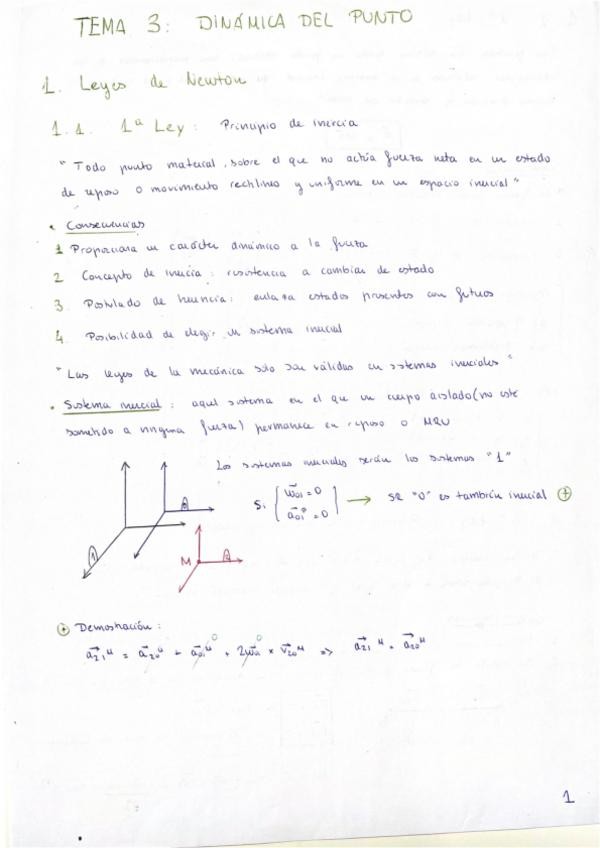 TEMA 3: DINÁMICA DEL PUNTO
1. Leyes de Newton
1.1. 1ª Ley: Principio de inercia
"Todo punto material, sobre el que no actúa fuerza neta en un estado
de reposo o movimiento rectilíneo y uniforme en un espacio inercial"
• Consecuencias
1 Proporciona un carácter dinámico a la fuerza
2 Concepto de inercia: resistencia a cambiar de estado
3. Postulado de herencia: enlaza estados presentes con futuros
4. Posibilidad de elegir un sistema inercial
"Las leyes de la mecánica solo son válidas en sistemas inerciales"
• Sistema inercial: aquel sistema en el que un cuerpo aislado (no esté
sometido a ninguna fuerza) permanece en reposo o MRU
Los sistemas inerciales serán los sistemas "1"
Si { ω⃗01 = 0
a⃗01⁰ = 0 } → SR "0" es también inercial (+)
1
0
M 2
(+) Demostración:
a⃗21ᴹ = a⃗20ᴹ + a⃗01ᴹ 0 + 2ω⃗01 0 × v⃗20ᴹ => a⃗21ᴹ = a⃗20ᴹ
1